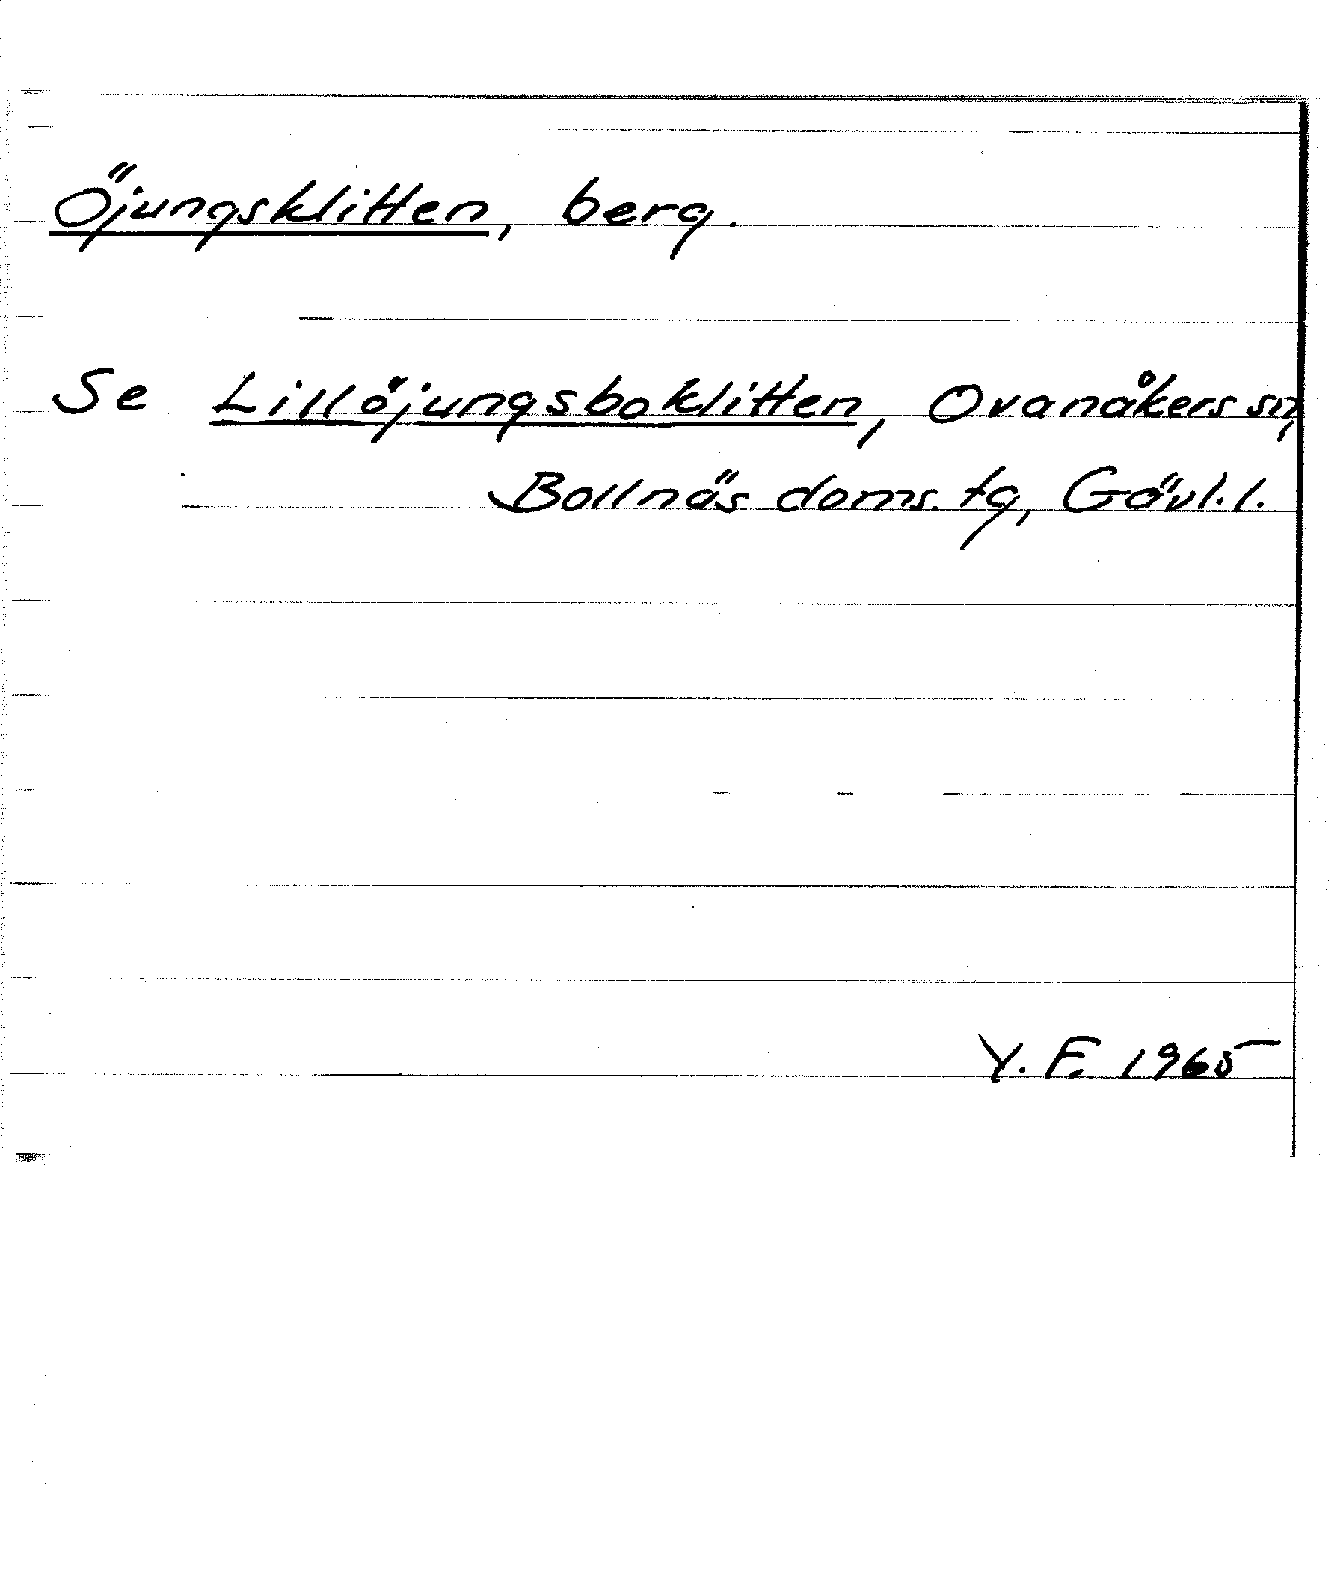 Öjungsklitten, berg.
Se Lillöjungsboklitten, Ovanåkers sn,
Bollnäs doms. tg, Gävl. l.
Y. F. 1965